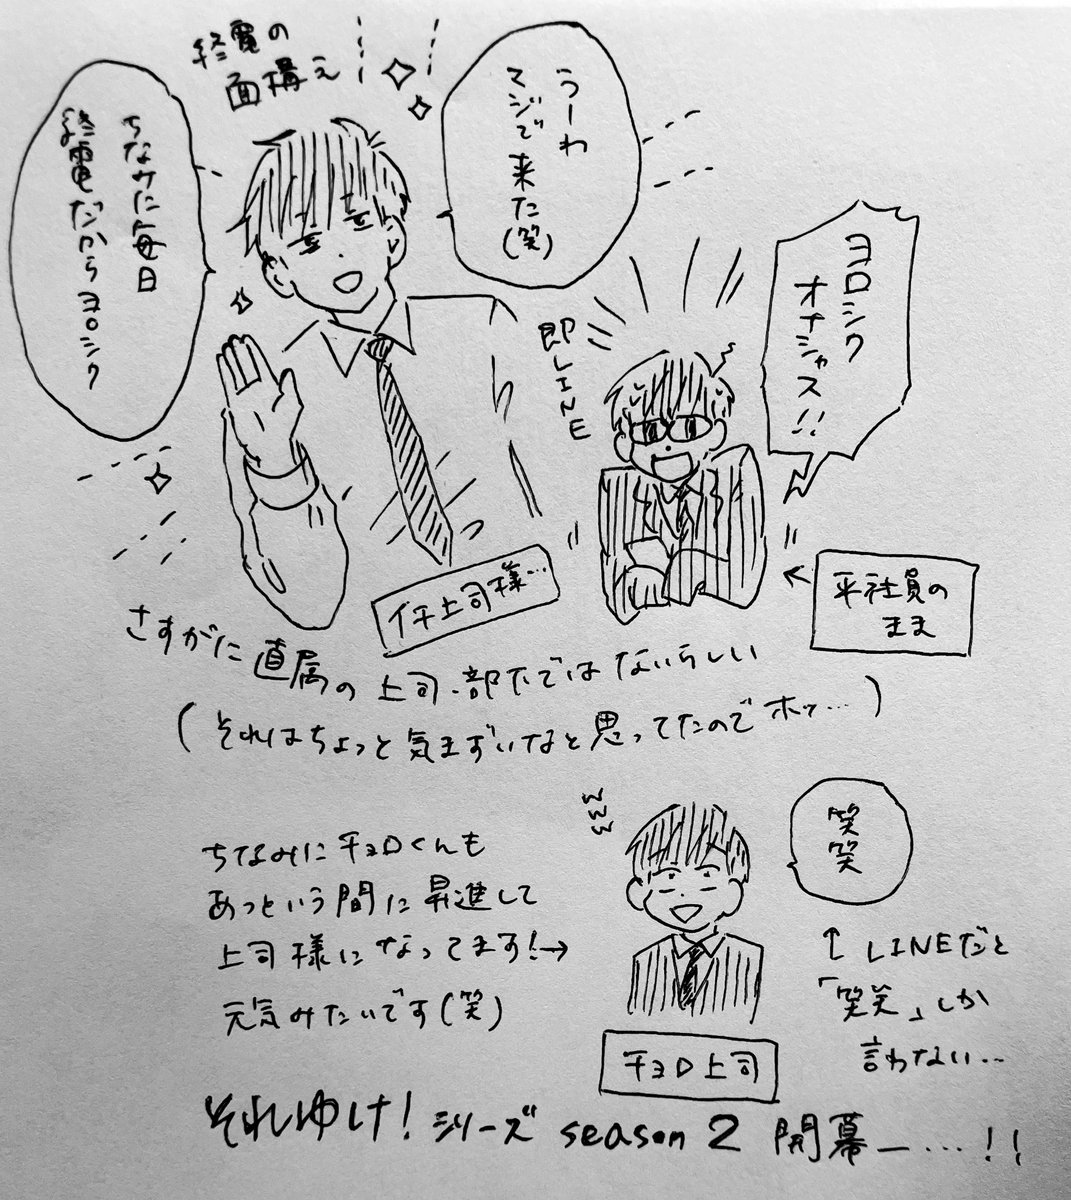 終電の
面構え
うーわ
マジで来た(笑)
ちなみに毎日
終電だからヨロシク
ヨロシク
オナシャス!!
即LINE
イチ上司様…
平社員の
まま
さすがに直属の上司・部下ではないらしい
(それはちょっと気まずいなと思ってたのでホッ…)
ちなみにチョロくんも
あっという間に昇進して
上司様になってます!→
元気みたいです(笑)
www
笑
笑
↑LINEだと
「笑笑」しか
言わない…
チョロ上司
それゆけ!シリーズ season 2 開幕ー…!!